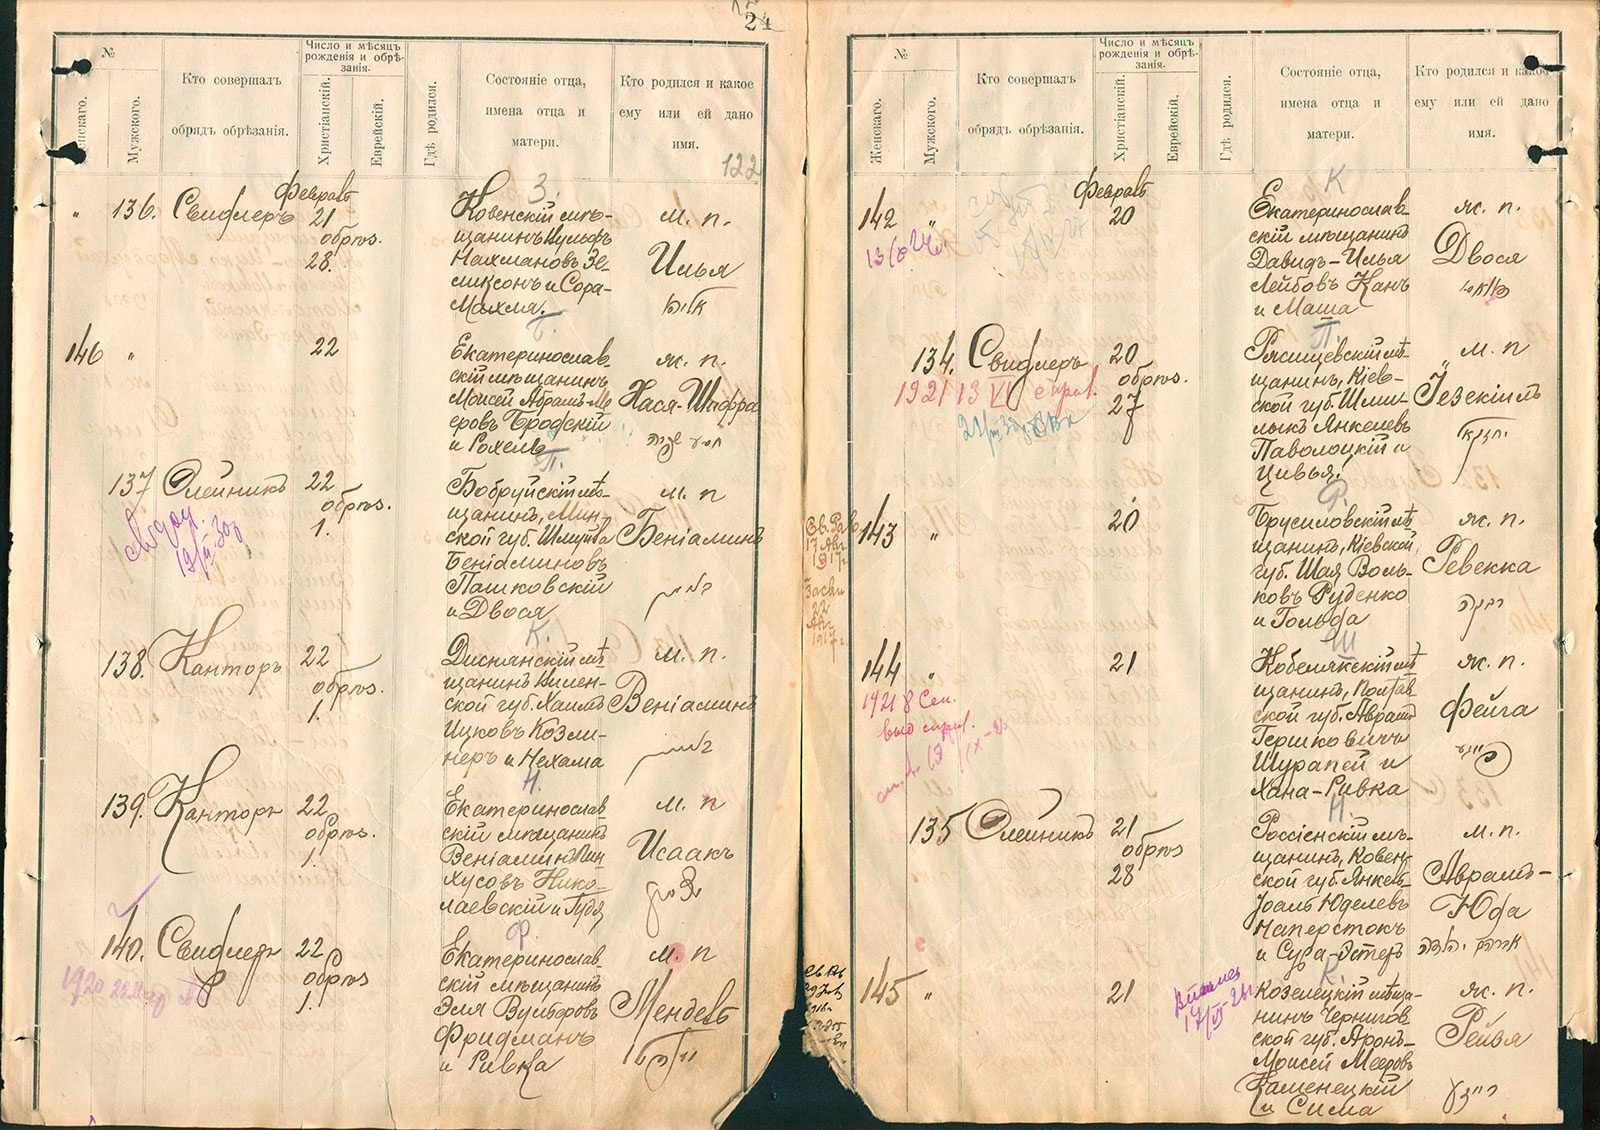 24
№
Женскаго.
Мужского.
Кто совершалъ
обрядъ обрѣзанія.
Число и мѣсяцъ
рожденія и обрѣ-
занія.
Христіанскій.
Еврейскій.
Гдѣ родился.
Состояніе отца,
имена отца и
матери.
Кто родился и какое
ему или ей дано
имя.
122
Февраль
З.
" 136. Свифлеръ 21
обрѣз.
28.
Ковенскій мѣ-
щанинъ Вульфъ
Нахмановъ Зе-
ликсонъ и Сора-
Махля.
м. п.
Илья
Б.
146 " 22
Екатеринослав
скій мѣщанинъ
Моисей Абрамъ-Ме
еровъ Бродскій
и Рохель
ж. п.
Хася-Шифра
П.
137 Олейникъ 22
обрѣз.
1.
Бобруйскій мѣ-
щанинъ, Мин-
ской губ.
Беніаминовъ
Пашковскій
и Двося
м. п
Беніаминъ
בנימין
К.
138. Канторъ 22
обрѣз.
1.
Диснянскій мѣ
щанинъ Вилен-
ской губ. Хаимъ
Ицковъ Козли-
неръ и Нехама
м. п.
Веніаминъ
בנימין
Н.
139. Канторъ 22
обрѣз.
1.
Екатеринослав
скій мѣщанинъ
Веніаминъ Пин
хусовъ Нико-
лаевскій и Гудя
м. п
Исаакъ
Ф.
140. Свифлеръ 22
обрѣз
1.
1920
Екатеринослав-
скій мѣщанинъ
Эля Вульфовъ
Фридманъ
и Ривка
м. п
Мендель
№
Женскаго.
Мужского.
Кто совершалъ
обрядъ обрѣзанія.
Число и мѣсяцъ
рожденія и обрѣ-
занія.
Христіанскій.
Еврейскій.
Гдѣ родился.
Состояніе отца,
имена отца и
матери.
Кто родился и какое
ему или ей дано
имя.
Февраль
К
142 " 20
Екатеринослав-
скій мѣщанинъ
Давидъ-Илья
Лейбовъ Канъ
и Маша
ж. п.
Двося
П.
134. Свифлеръ 20
обрѣз.
27
1921 13 VI
Ряснинскій мѣ-
щанинъ, Кіев-
ской губ. Шми-
лыкъ Янкелевъ
Паволоцкій и
Цивья.
м. п
Іезекіиль
Р.
143 " 20
17 Авг
1917г.
22
Авг
1917г.
Брусиловскій мѣ
щанинъ, Кіевской
губ. Шая Воль-
ковъ Руденко
и Гольда
ж. п.
Ревекка
רבקה
Ш
144 " 21
1921 8 Сен.
Кобелякскій мѣ
щанинъ, Полтав-
ской губ. Аврамъ
Гершковичъ
Шурапей и
Хана-Ривка
ж. п.
Фейга
Н
135 Олейникъ 21
обрѣз
28
Россіенскій мѣ-
щанинъ, Ковен-
ской губ. Янкель
Іоаль Юделевъ
Наперстокъ
и Сура-Эстеръ
м. п.
Аврамъ-
Юда
אברהם יהודה
К.
145 " 21
Козелецкій мѣща-
нинъ Чернигов
ской губ. Аронъ-
Моисей Мееровъ
Каменецкій
и Сима
ж. п.
Рейзя